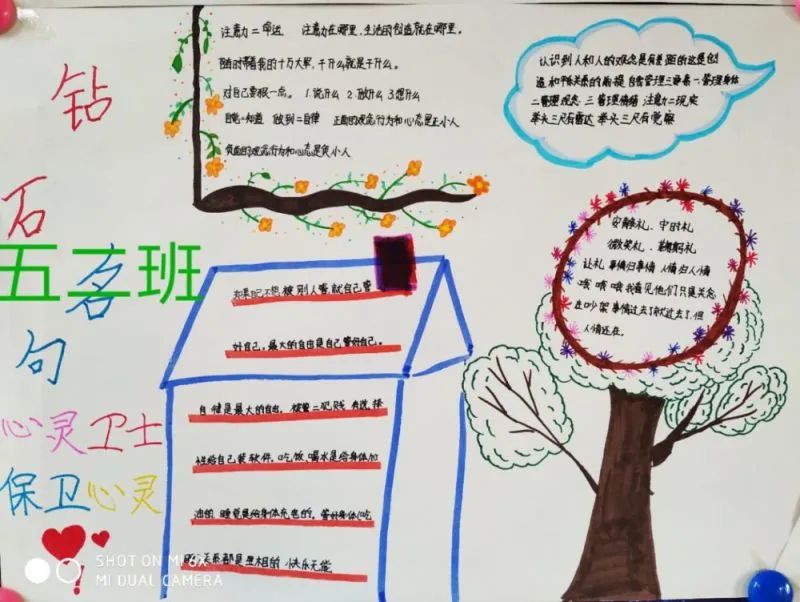 钻
石
名
句
五二班
心灵卫士
保卫心灵
注意力=命运 注意力在哪里,生活的创造就在哪里。
随时带着我的十万大军,干什么就是干什么。
对自己要狠一点。1.说什么 2.做什么 3.想什么
自觉=知道 做到=自律 正面的观念行为和心态是正小人
负面的观念行为和心态是负小人
认识到人和人的观念是有差距的这是创
造和平关系的前提 自我管理三要素 一.管理身体
二管理观念 三管理情绪 注意力=现实
举头三尺有雷达 举头三尺有觉察
安静礼、守时礼
微笑礼、鞠躬礼
让礼 事情归事情 人情归人情
哦 哦 哦 我看见他们只是关念
在吵架 事情过去了就过去了,但
人情还在。
如果自己不想被别人管,就自己管
好自己,最大的自由是自己管好自己。
自律是最大的自由, 被管=犯贱 有选择
性给自己装软件。吃饭、喝水是给身体加
油的 睡觉是给身体充电的。管好身体(吃
的关系都是互相的 快乐无能
SHOT ON MI 6X
MI DUAL CAMERA